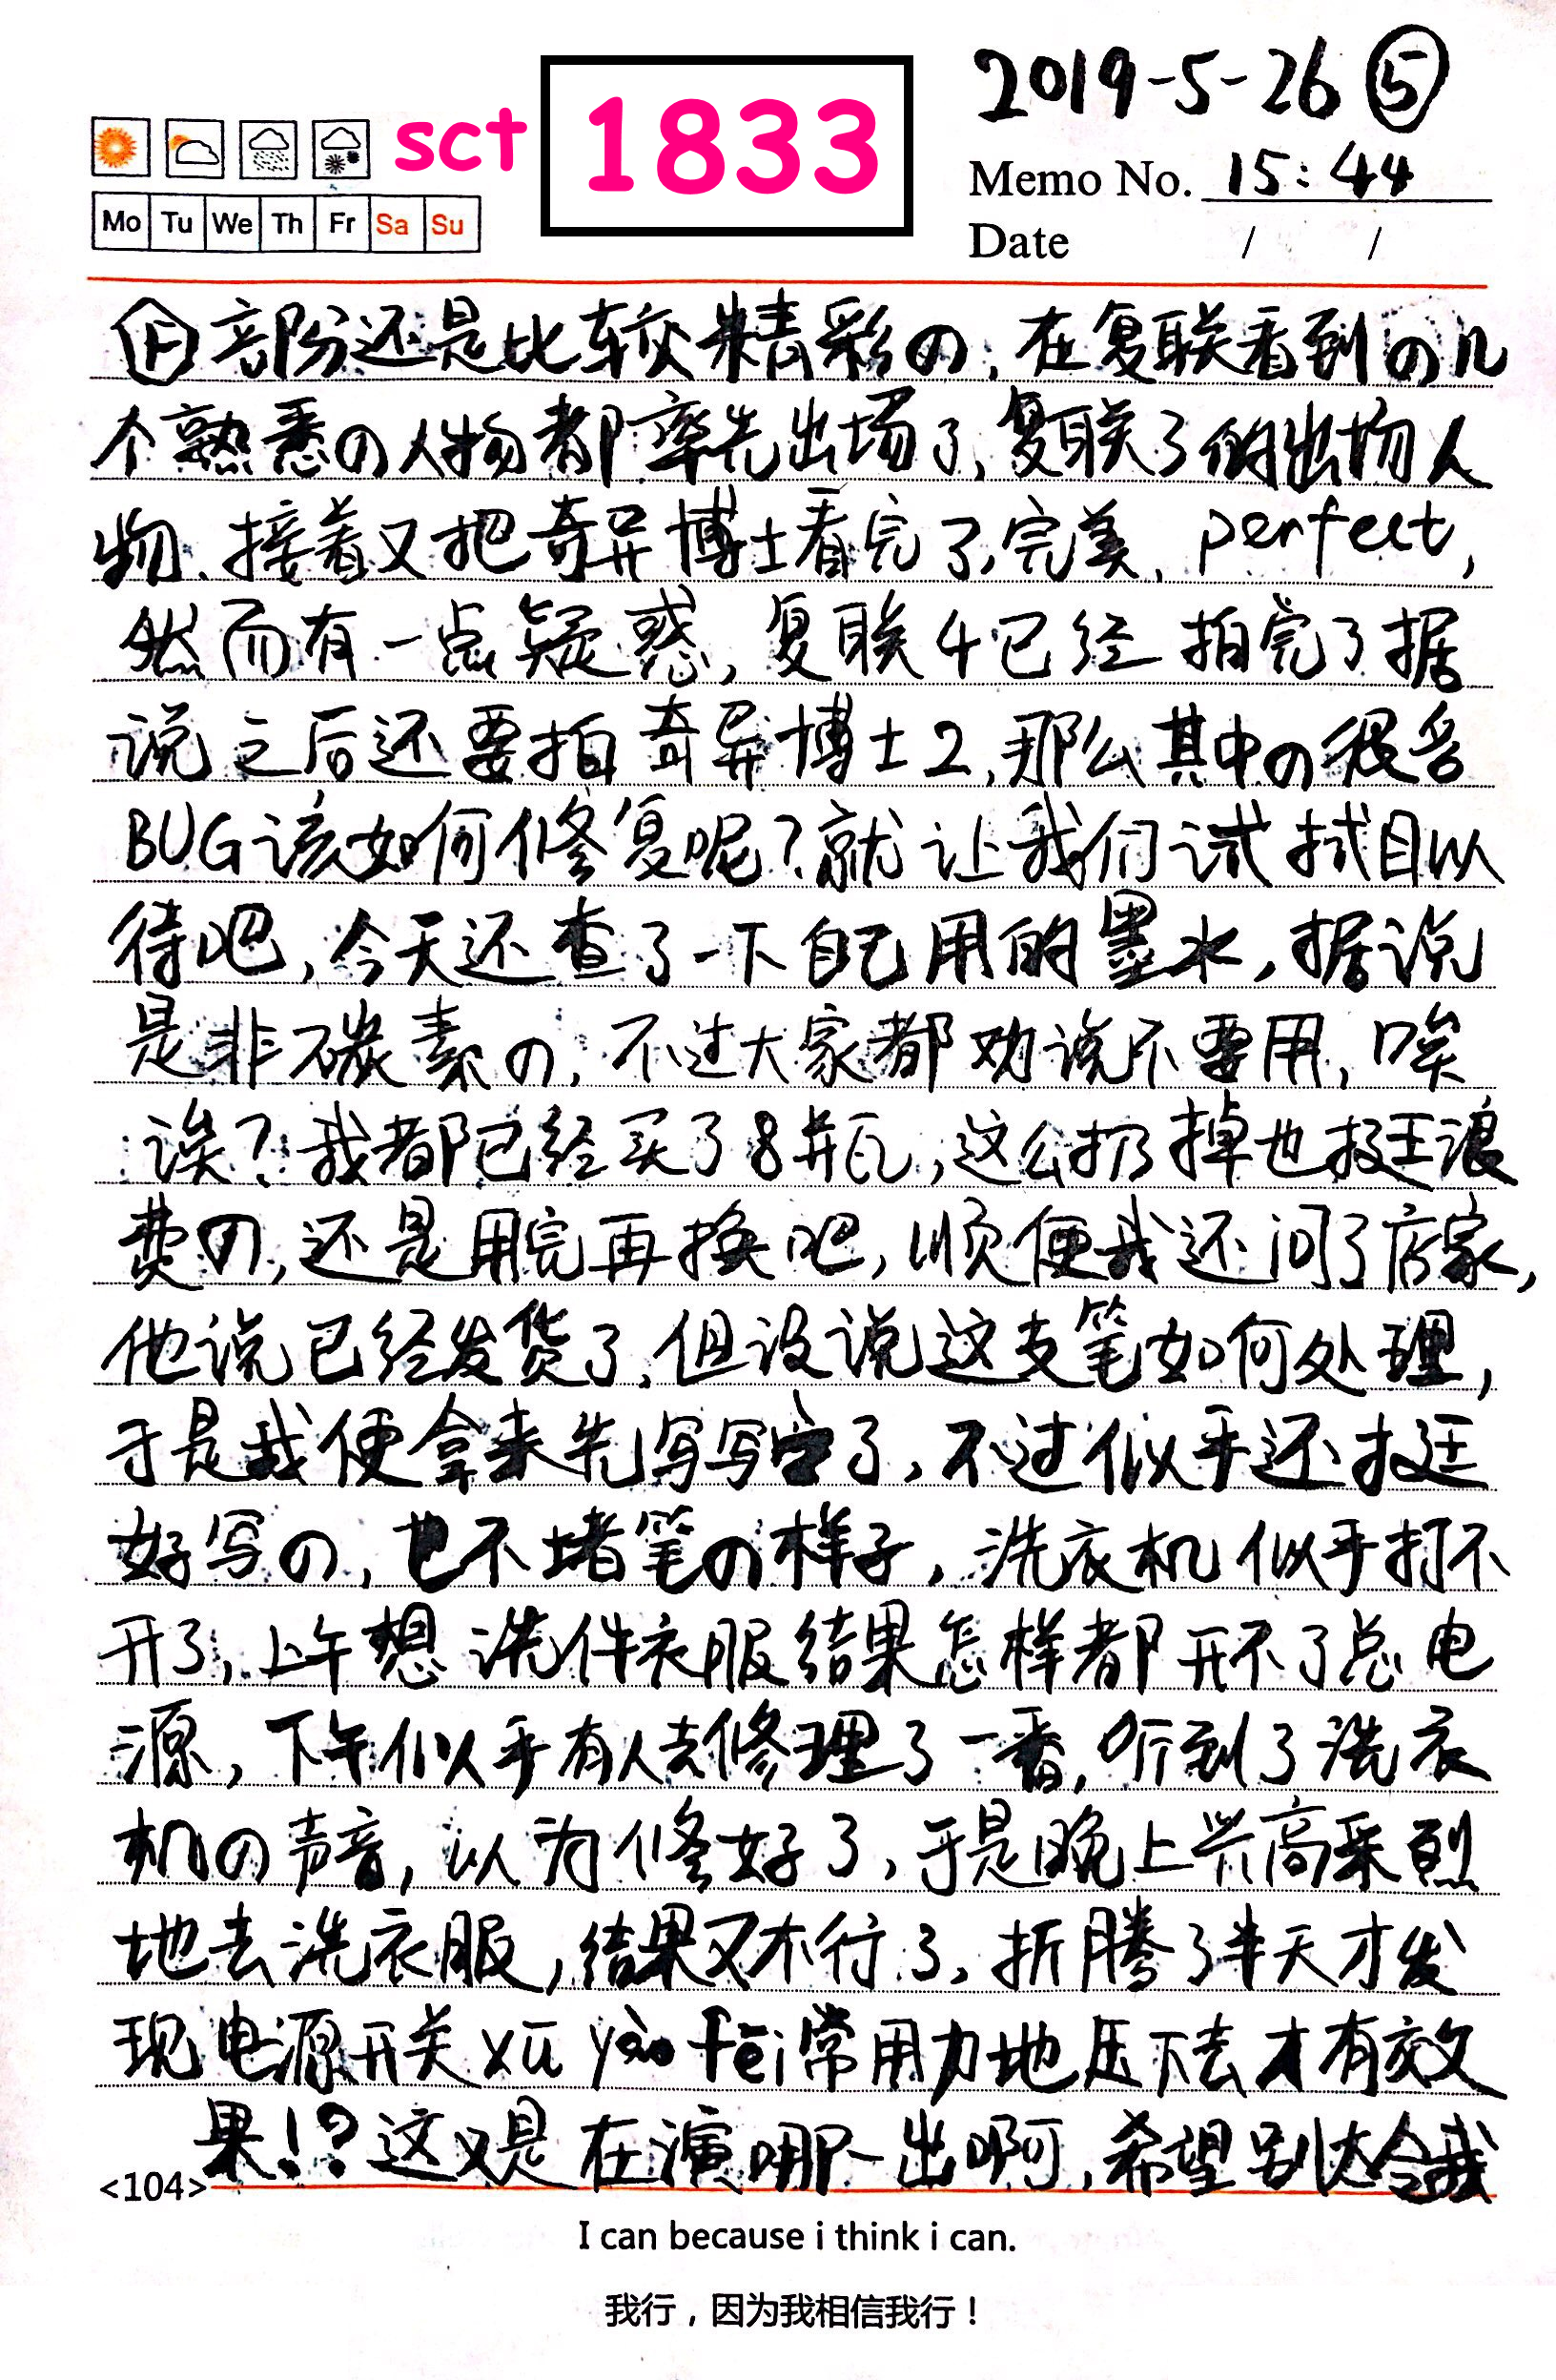 2019-5-26 ⑤
sct 1833
Memo No. 15:44
Mo Tu We Th Fr Sa Su
Date / /
部份还是比较精彩の,在复联看到の几
个熟悉の人物都率先出场了,复联3的出场人
物、接着又把奇异博士看完了,完美、perfect,
然而有一点疑惑,复联4已经拍完了据
说之后还要拍奇异博士2,那么其中の很多
BUG该如何修复呢?就让我们试拭目以
待吧,今天还查了一下自己用的墨水,据说
是非碳素の,不过大家都劝说不要用,唉
诶?我都已经买了8瓶,这么扔掉也挺浪
费の,还是用完再换吧,顺便我还问了店家,
他说已经发货了,但没说这支笔如何处理,
于是我便拿来先写写字了,不过似乎还挺
好写の,也不堵笔の样子,洗衣机似乎打不
开了,上午想洗件衣服结果怎样都开不了总电
源,下午似乎有人去修理了一番,听到了洗衣
机の声音,以为修好了,于是晚上兴高采烈
地去洗衣服,结果又不行了,折腾了半天才发
现电源开关xū yào fēi常用力地压下去才有效
果!?这又是在演哪一出啊,希望别太令我
<104>
I can because i think i can.
我行，因为我相信我行！